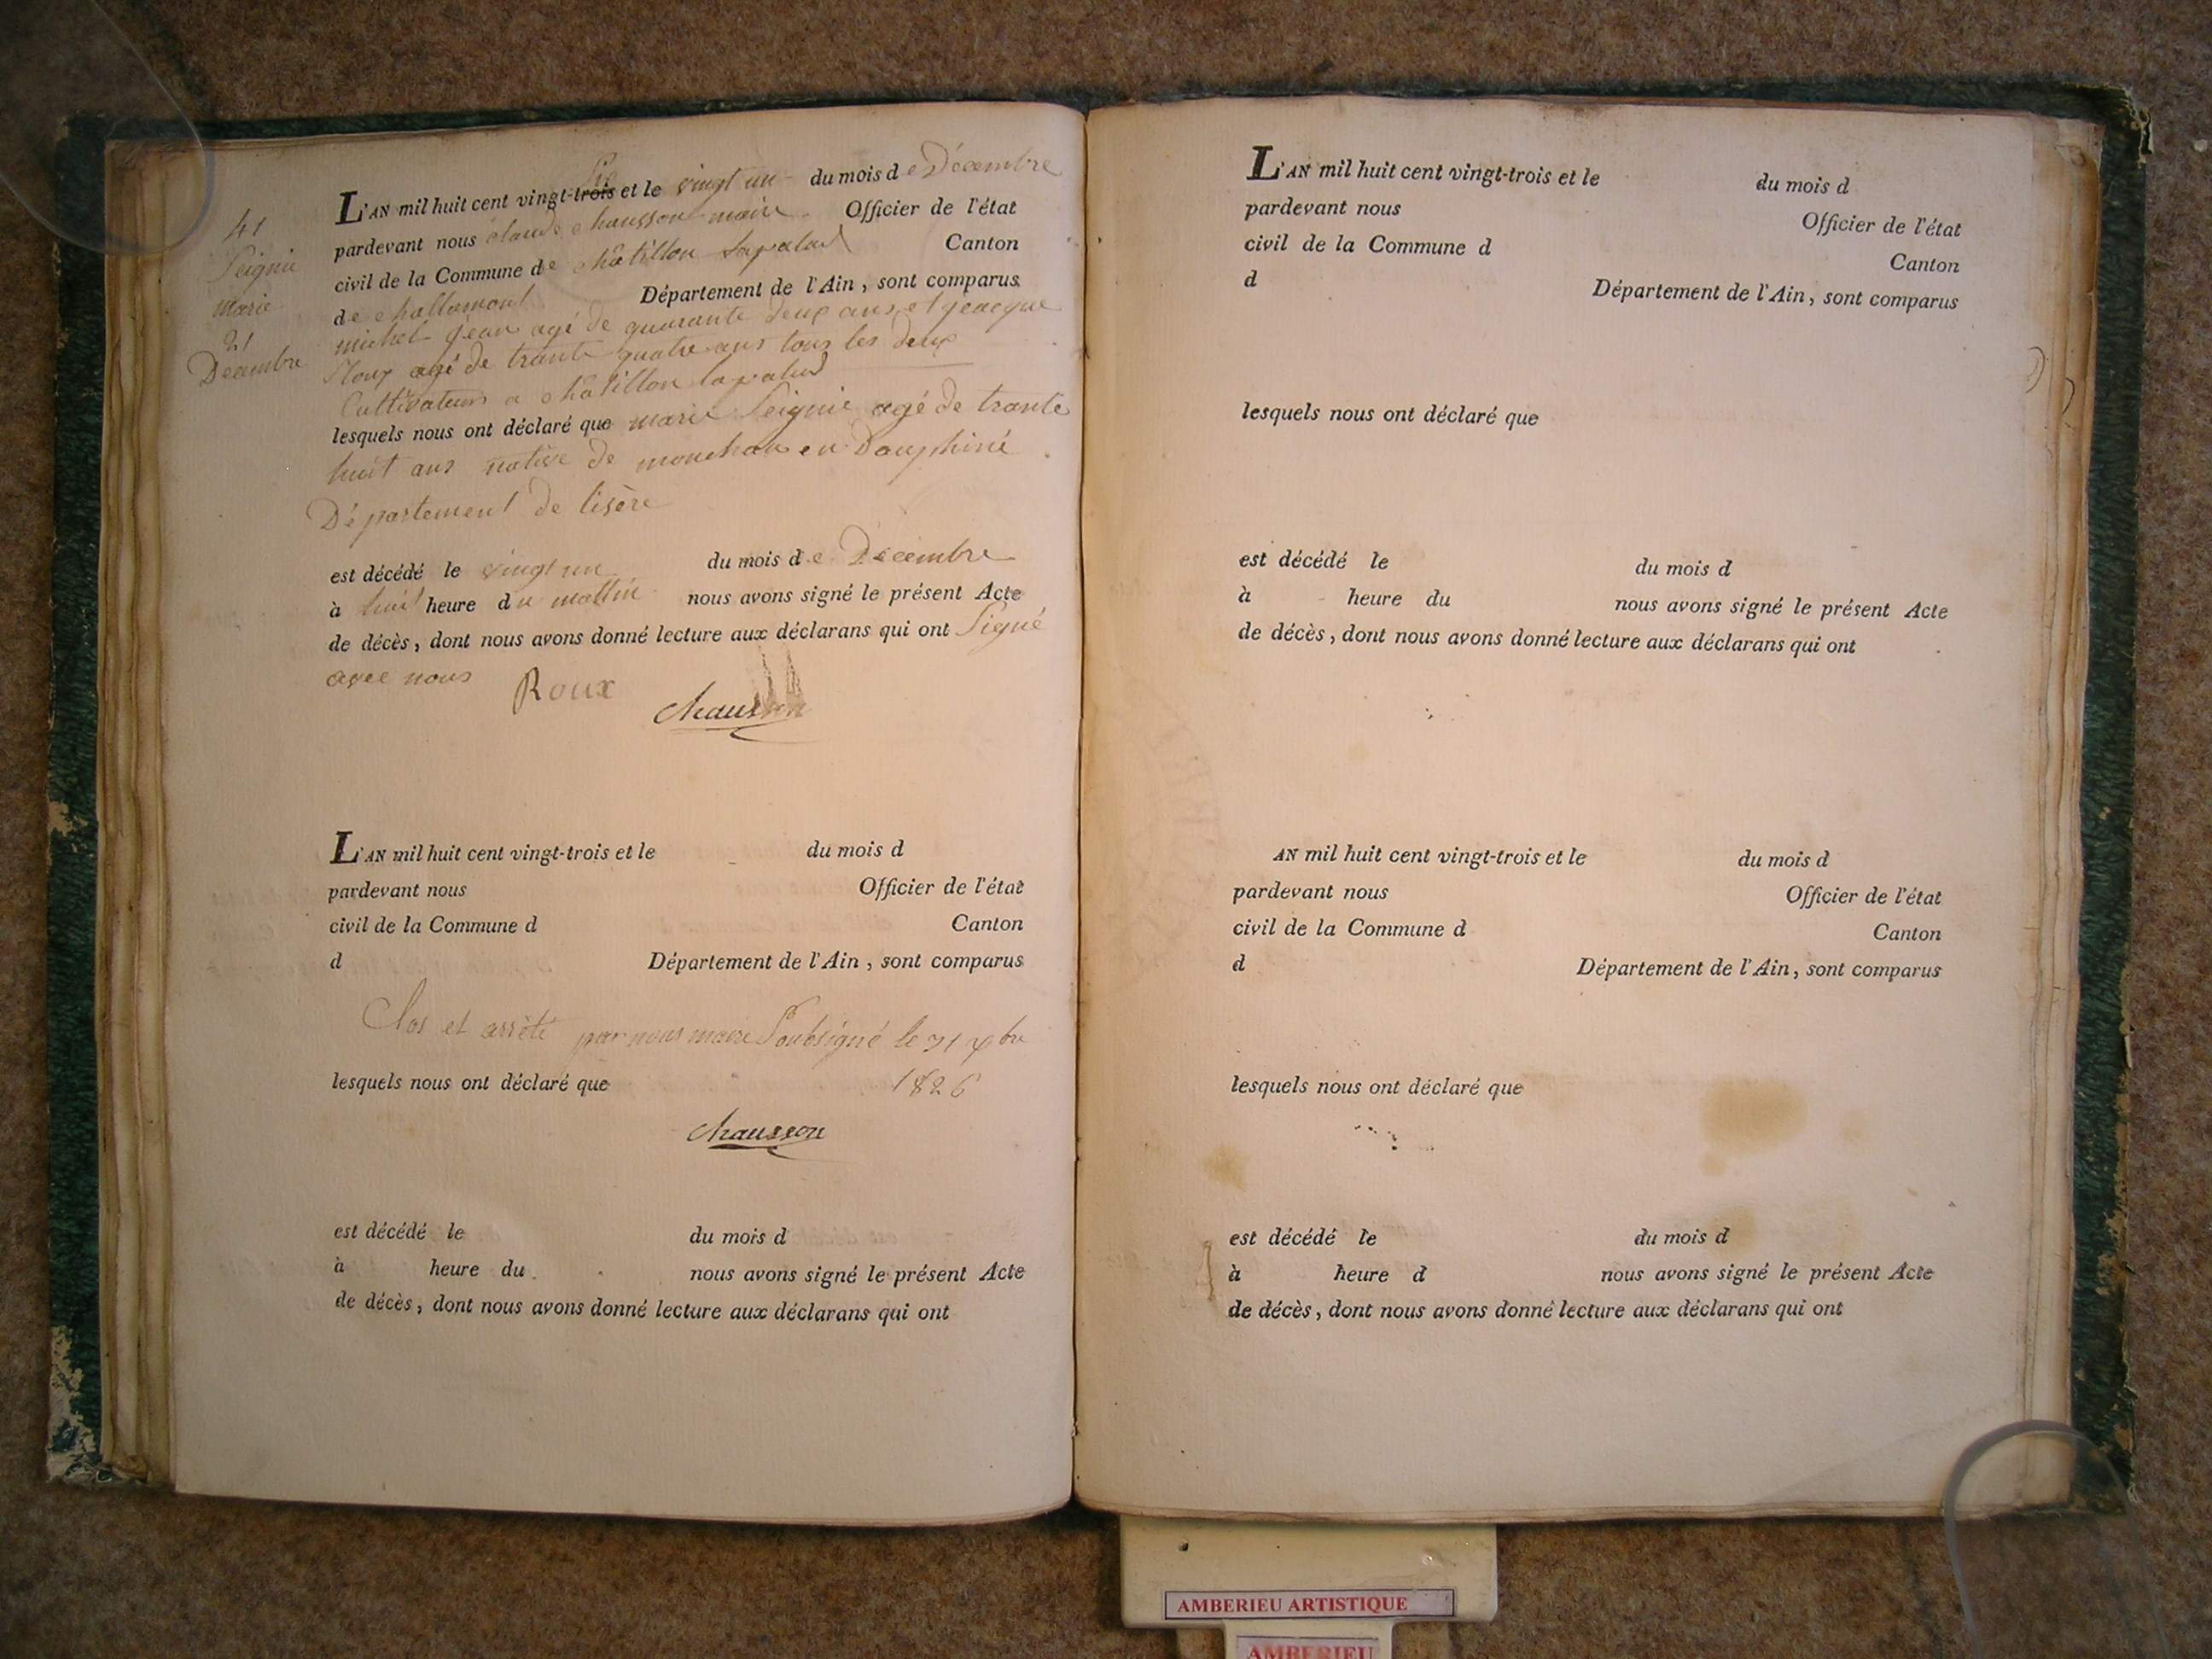 41
Seignie
Marie
21
Décembre
L'AN mil huit cent vingt-trois six et le vingt un du mois de Décembre
pardevant nous claude chausson maire Officier de l'état
civil de la Commune de chatillon lapalud Canton
de challamont Département de l'Ain, sont comparus
michel jean agé de quarante deux ans et jeacque
Roux agé de trante quatre ans tous les deux
Cultivateurs a chatillon lapalud
lesquels nous ont déclaré que marie Seignie agé de trante
huit ans native de en Dauphiné
Département de lisère
est décédé le vingt un du mois de Décembre
à huit heure du mattin nous avons signé le présent Acte
de décès, dont nous avons donné lecture aux déclarans qui ont Signé
avec nous
Roux
chausson
L'AN mil huit cent vingt-trois et le du mois d
pardevant nous Officier de l'état
civil de la Commune d Canton
d Département de l'Ain, sont comparus
Clos et arrêté par nous maire Soubsigné le 31 xbre
lesquels nous ont déclaré que 1826
chausson
est décédé le du mois d
à heure du nous avons signé le présent Acte
de décès, dont nous avons donné lecture aux déclarans qui ont
L'AN mil huit cent vingt-trois et le du mois d
pardevant nous Officier de l'état
civil de la Commune d Canton
d Département de l'Ain, sont comparus
lesquels nous ont déclaré que
est décédé le du mois d
à heure du nous avons signé le présent Acte
de décès, dont nous avons donné lecture aux déclarans qui ont
AN mil huit cent vingt-trois et le du mois d
pardevant nous Officier de l'état
civil de la Commune d Canton
d Département de l'Ain, sont comparus
lesquels nous ont déclaré que
est décédé le du mois d
à heure d nous avons signé le présent Acte
de décès, dont nous avons donné lecture aux déclarans qui ont
AMBERIEU ARTISTIQUE
AMBERIEU